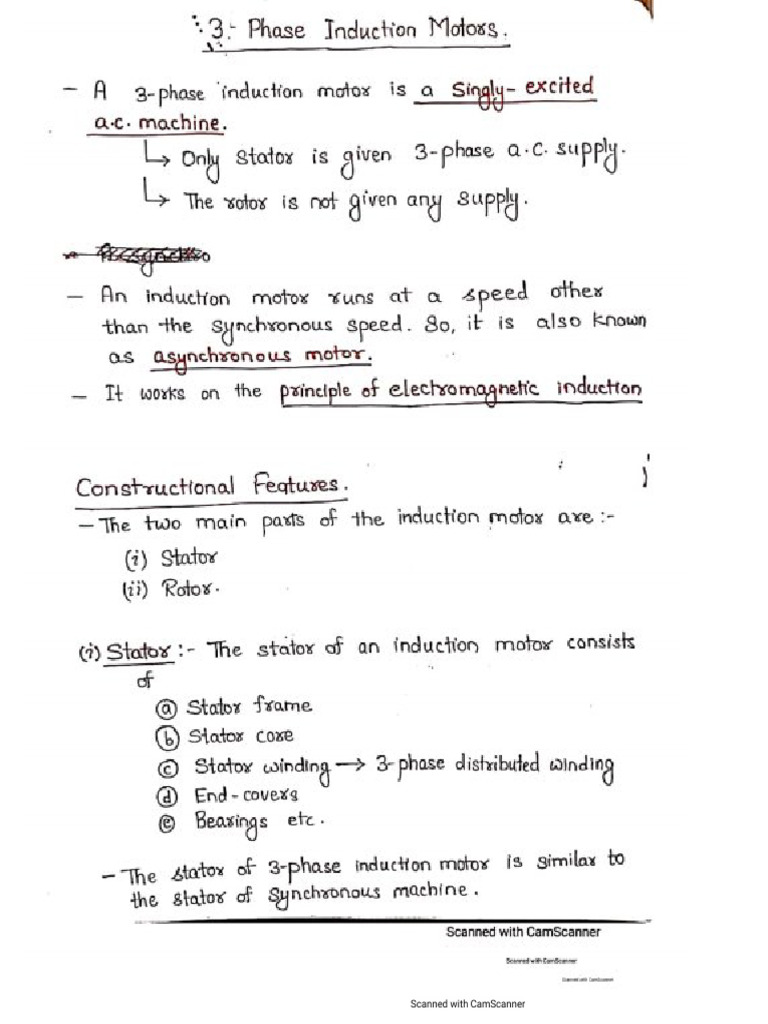 3:- Phase Induction Motors.
- A 3-phase induction motor is a Singly-excited
a.c. machine.
↳ Only stator is given 3-phase a.c. supply.
↳ The rotor is not given any supply.
- An induction motor runs at a speed other
than the synchronous speed. So, it is also known
as asynchronous motor.
- It works on the principle of electromagnetic induction
Constructional Features.
- The two main parts of the induction motor are :-
(i) Stator
(ii) Rotor.
(i) Stator :- The stator of an induction motor consists
of
ⓐ Stator frame
ⓑ Stator core
ⓒ Stator winding → 3-phase distributed winding
ⓓ End-covers
ⓔ Bearings etc.
- The stator of 3-phase induction motor is similar to
the stator of synchronous machine.
Scanned with CamScanner
Scanned with CamScanner
Scanned with CamScanner
Scanned with CamScanner